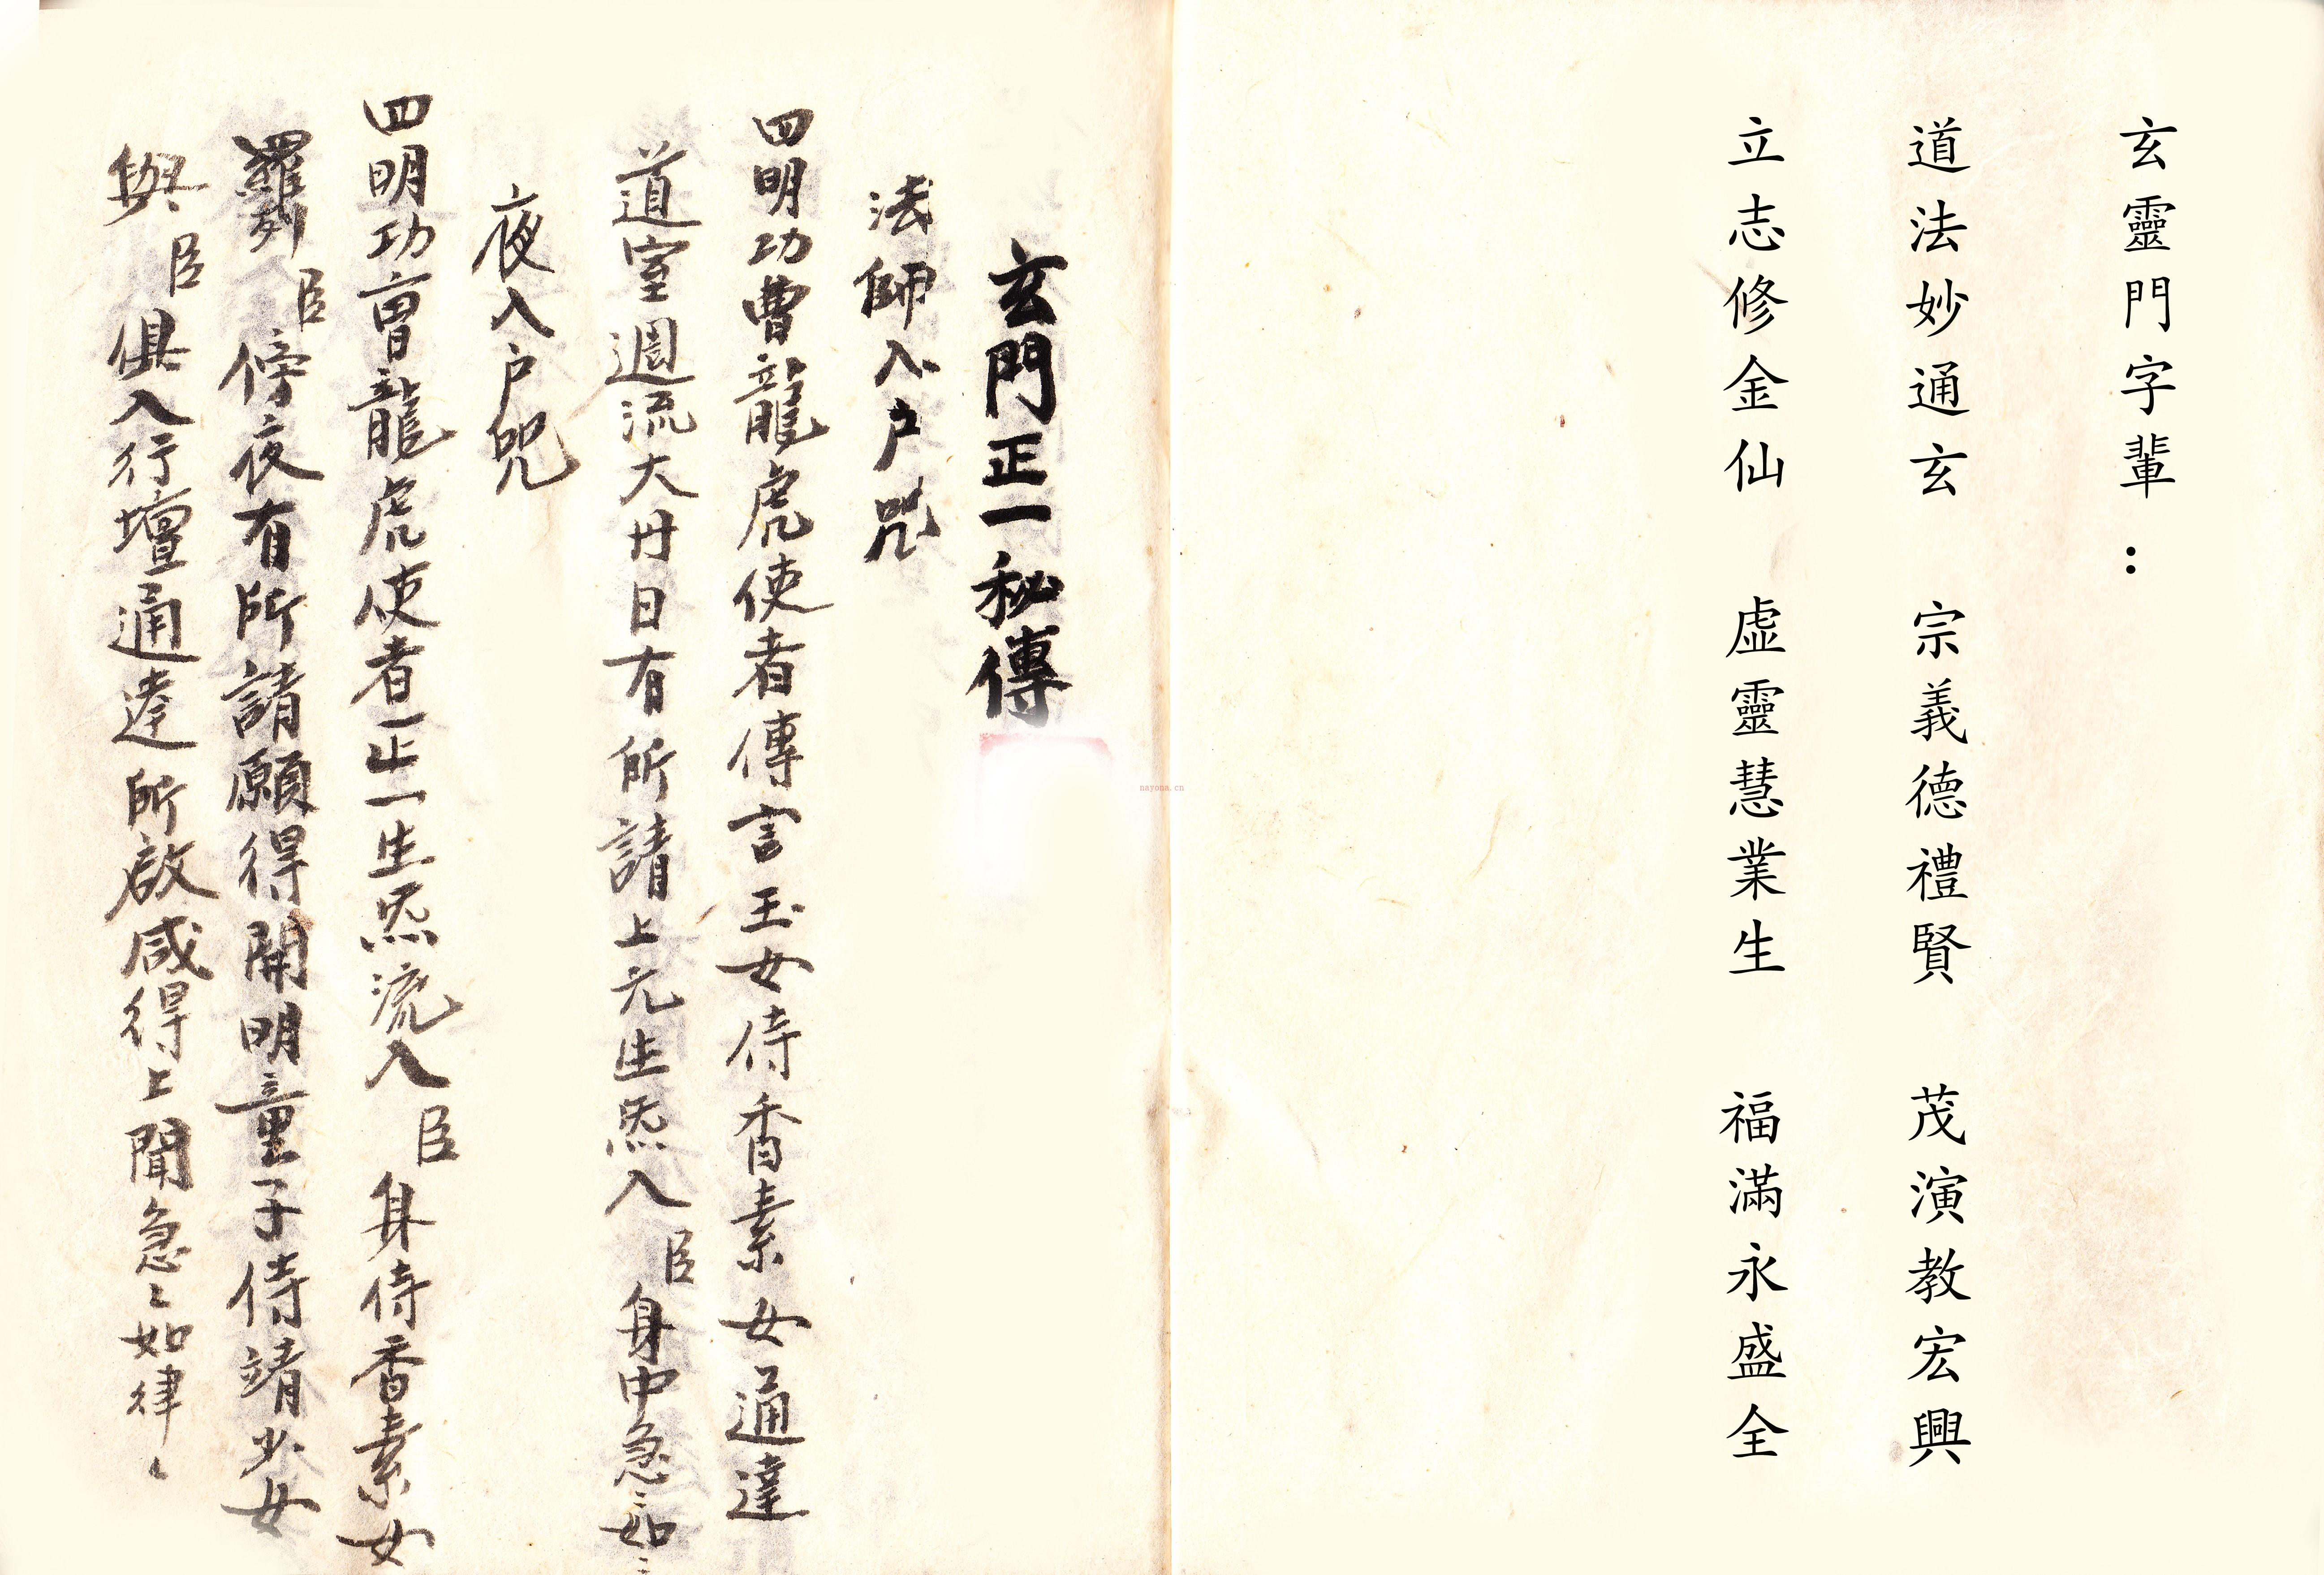 玄靈門字輩：
道法妙通玄　宗義德禮賢　茂演教宏興
立志修金仙　虛靈慧業生　福滿永盛全
玄門正一秘傳
法師入户咒
四明功曹龍虎使者傳言玉女侍香素女通達
道室週流大丹日有所請上元生炁入臣身中急〻如〻
夜入户咒
四明功曹龍虎使者正一生炁流入臣身侍香素女
羅列臣傍夜有所請願得開明童子侍靖少女
與臣俱入行壇通達所啟咸得上聞急〻如律〻
nayona.cn